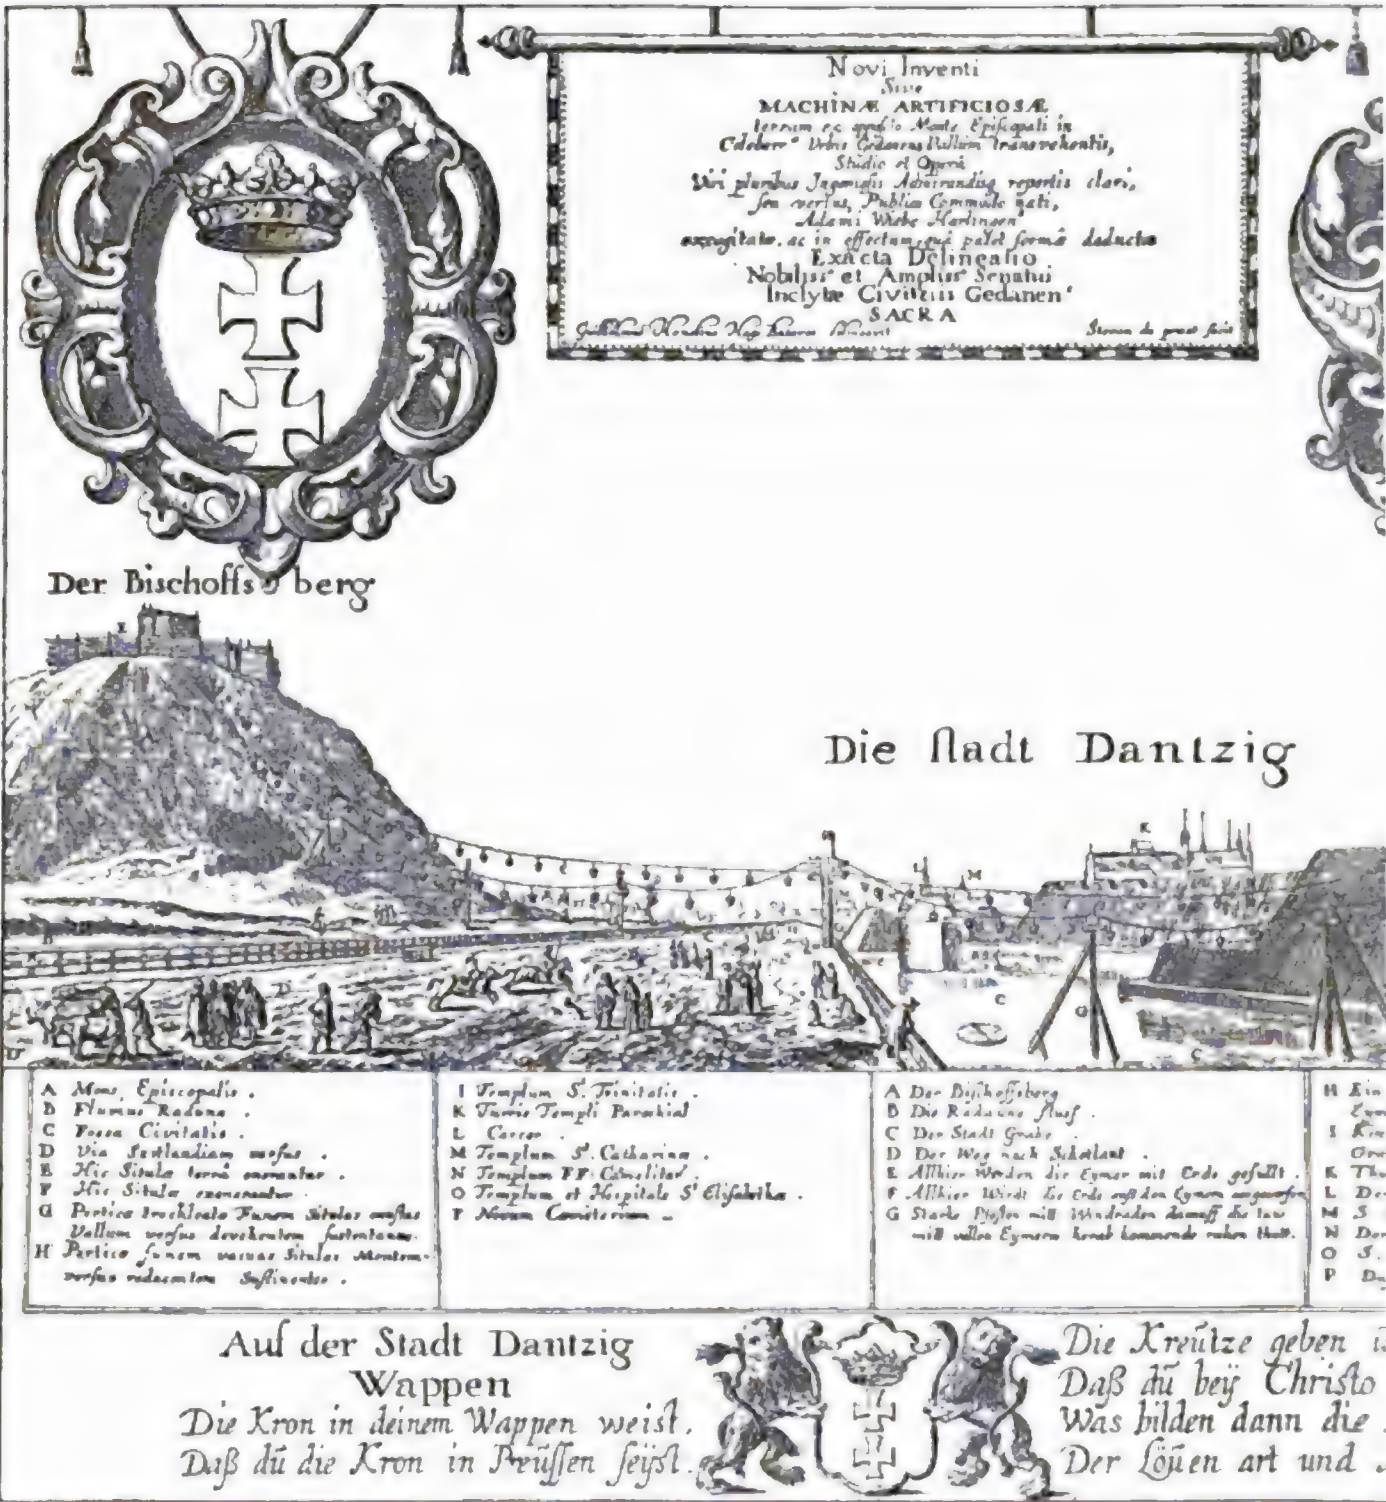 Novi Inventi
Sive
MACHINÆ ARTIFICIOSÆ
terram ex opposito Monte Episcopali in
Celeberr Urbis Gedanens Vallum transvehentis,
Studio et Operâ
Viri pluribus Ingeniosis Admirandisq repertis clari,
seu verius, Publico Commodo nati,
Adami Wiebe Harlingen
excogitatæ, ac in effectum, quâ patet formâ deductæ
Exacta Delineatio
Nobiliss et Ampliss Senatui
Inclytæ Civitatis Gedanen
SACRA
Hondius Hag
fecit
Der Bischoffs berg
Die stadt Dantzig
A Mons Episcopalis .
B Flumus Raduna .
C Fossa Civitatis .
D Via Scotlandiam versus .
E Hic Situlæ terrâ onerantur .
F Hic Situlæ exonerantur .
G Pertica trochleata Funem Situlas onustas
Vallum versus devehentem sustentans.
H Pertica funem vacuas Situlas Montem
versus reducentem Sustinentes .
I Templum St. Trinitatis .
K Turris Templi Parochial
L Carcer .
M Templum St. Catharinæ .
N Templum FF. Camelitar .
O Templum et Hospitale St Elisabethæ .
P Novum Cœmiterium
A Der Bischoffsberg
B Die Radaune fluss .
C Der Stadt Grabe .
D Der Weg nach Schotlant .
E Allhier Werden die Eymer mit Erde gefüllt .
F Allhier Wirdt die Erde auß den Eymern
G Starke Pfosten mitt Windraden darauff die tau
mitt vollen Eymern herab kommende ruhen thutt.
H Ein
I
K
L
M S
N
O S.
P
Auf der Stadt Dantzig
Wappen
Die Kron in deinem Wappen weist,
Daß dū die Kron in Preüssen seÿst.
Die Kreütze geben
Daß dū beÿ Christo
Was bilden dann die
Der Löüen art und